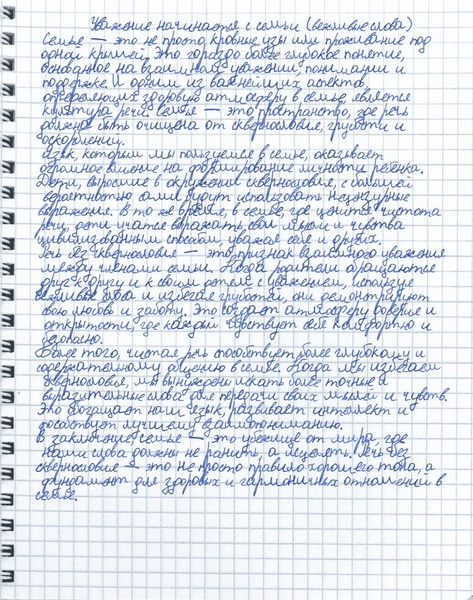 Уважение начинается с семьи (вежливые слова)
Семья — это не просто кровные узы или проживание под
одной крышей. Это гораздо более глубокое понятие,
основанное на взаимном уважении, понимании и
поддержке. И одним из важнейших аспектов,
определяющих здоровую атмосферу в семье, является
культура речи. Семья — это пространство, где речь
должна быть очищена от сквернословия, грубости и
оскорблений.
Язык, которым мы пользуемся в семье, оказывает
огромное влияние на формирование личности ребенка.
Дети, выросшие в окружении сквернословия, с большей
вероятностью сами будут использовать нецензурные
выражения. В то же время, в семье, где ценится чистота
речи, дети учатся выражать свои мысли и чувства
цивилизованным способом, уважая себя и других.
Речь без сквернословия — это признак взаимного уважения
между членами семьи. Когда родители обращаются
друг к другу и к своим детям с уважением, используя
вежливые слова и избегая грубостей, они демонстрируют
свою любовь и заботу. Это создает атмосферу доверия и
открытости, где каждый чувствует себя комфортно и
безопасно.
Более того, чистая речь способствует более глубокому и
содержательному общению в семье. Когда мы избегаем
сквернословия, мы вынуждены искать более точные и
выразительные слова для передачи своих мыслей и чувств.
Это обогащает наш язык, развивает интеллект и
способствует лучшему взаимопониманию.
В заключение семья — это убежище от мира, где
наши слова должны не ранить, а исцелять. Речь без
сквернословия — это не просто правило хорошего тона, а
фундамент для здоровых и гармоничных отношений в
семье.